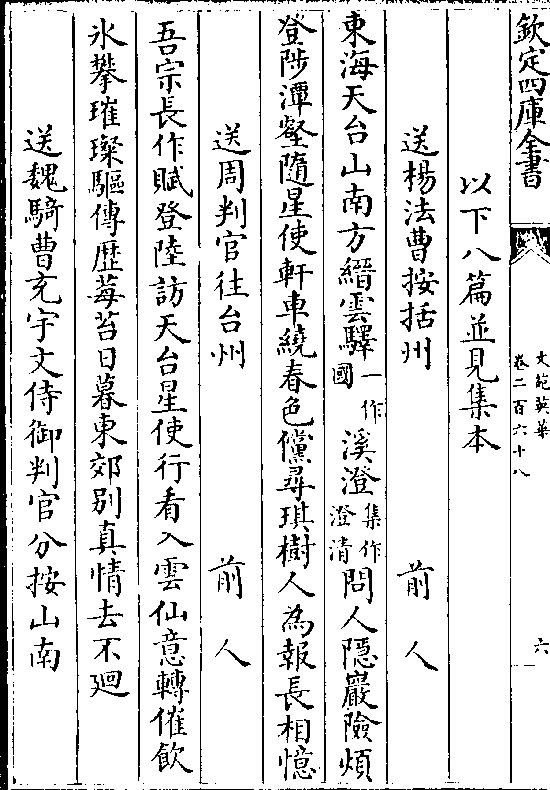 欽定四庫全書
文苑英華
卷二百六十八
六
以下八篇並見集本
送楊法曹按括州　前人
東海天台山南方縉雲驛一作國溪澄集作澄清問人隠巖險煩
登陟潭壑隨星使軒車繞春色儻尋琪樹人為報長相憶
送周判官往台州　前人
吾宗長作賦登陸訪天台星使行看入雲仙意轉催飲
氷攀璀璨驅傳歴莓苔日暮東郊别真情去不廻
送魏騎曹充宇文侍御判官分按山南